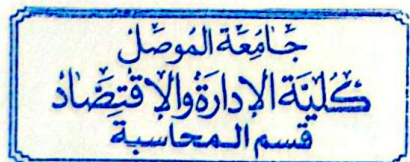 جَامِعَة المُوصل
كُليَّة الإدارَة والإقتِصَاد
قسم المحاسبة